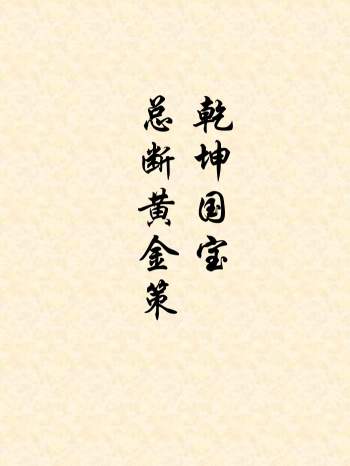 乾坤国宝
总断黄金策